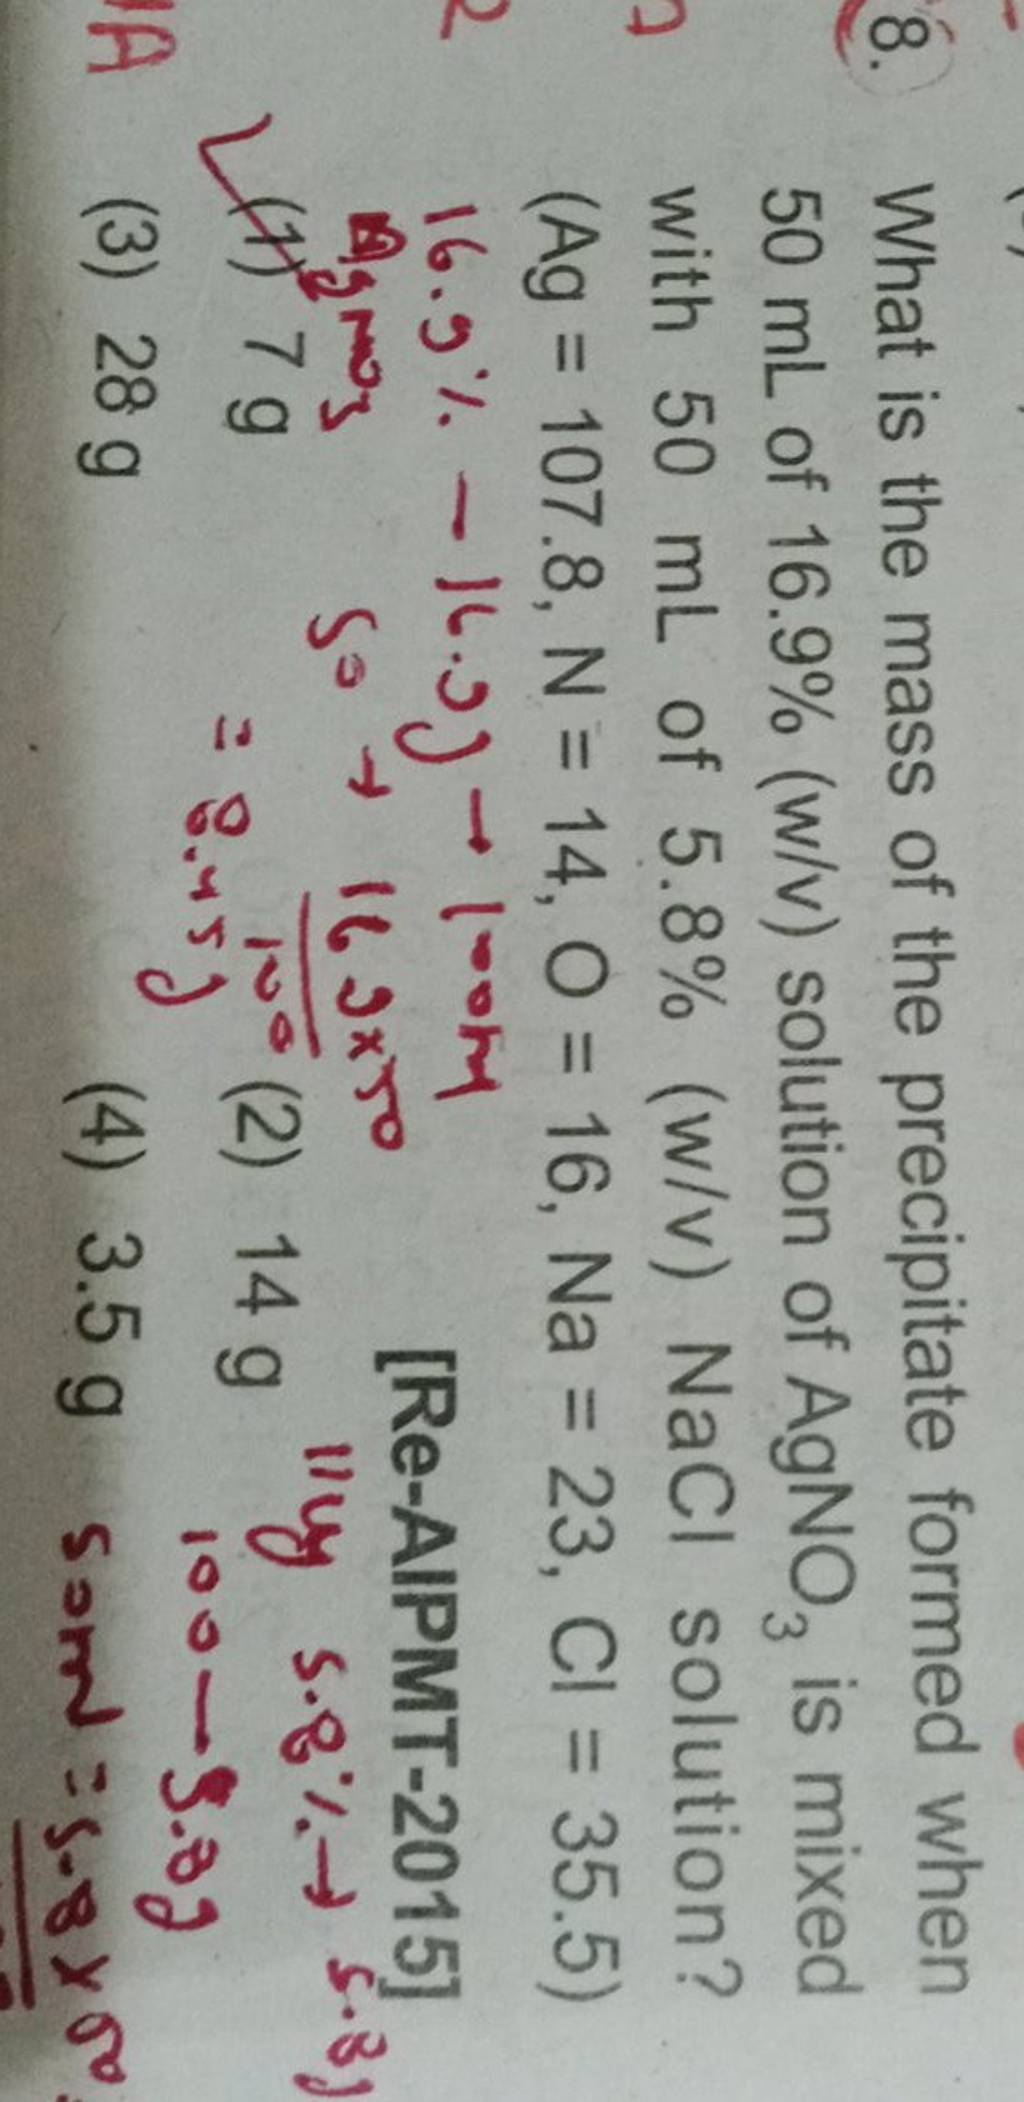 8. What is the mass of the precipitate formed when
50 mL of 16.9% (w/v) solution of AgNO3 is mixed
with 50 mL of 5.8% (w/v) NaCl solution?
(Ag = 107.8, N = 14, O = 16, Na = 23, Cl = 35.5)
[Re-AIPMT-2015]
16.9% — 16.9g → 100ml
AgNO3
50 → 16.9×50
100
= 8.45g
(1) 7 g (2) 14 g
(3) 28 g (4) 3.5 g
111ly 5.8% → 5.8g
100 — 5.8g
50ml = 5.8×50